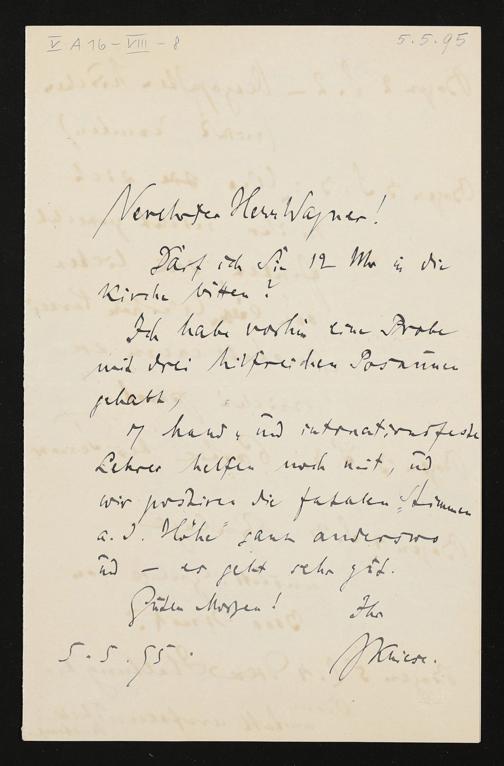 V A 16 - VIII - 8
5.5.95
Verehrter Herr Wagner!
Darf ich Sie 12 Uhr in die
Kirche bitten?
Ich habe vorhin eine Probe
mit drei hilfreichen Posaunen
gehabt,
7 hand- und intonationsfeste
Lehrer helfen noch mit, und
wir postiren die fatalen „Stimmen
a. d. Höhe" ganz anderswo
und — es geht sehr gut.
Guten Morgen!
Ihr
5.5.95.
JKniese.